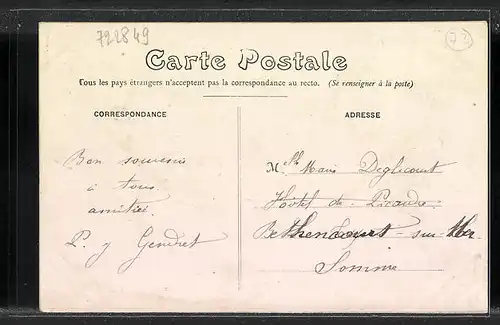 722849
Carte Postale
Tous les pays étrangers n'acceptent pas la correspondance au recto. (Se renseigner à la poste)
CORRESPONDANCE
ADRESSE
Bon souvenir
à tous
amitiés.
P. y Gendret
Mlle Marie Deglicourt
Hôtel de Picardie
Bethencourt-sur-Mer
Somme